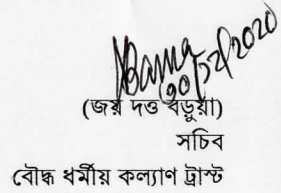 ২০/১২/2020
(জয় দত্ত বড়ুয়া)
সচিব
বৌদ্ধ ধর্মীয় কল্যাণ ট্রাস্ট